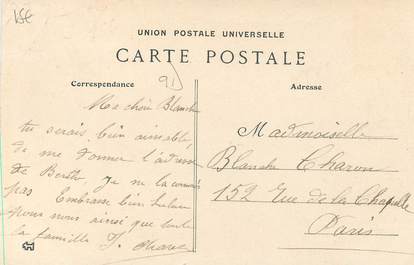 15€
UNION POSTALE UNIVERSELLE
CARTE POSTALE
Correspondance
Adresse
Ma chère Blanche
tu serais bien aimable,
de me donner l'adresse
de Berthe Je ne la connais
pas Embrasse bien
pour nous ainsi que toute
la famille J. Charon
Mademoiselle
Blanche Charon
152 Rue de la Chapelle
Paris